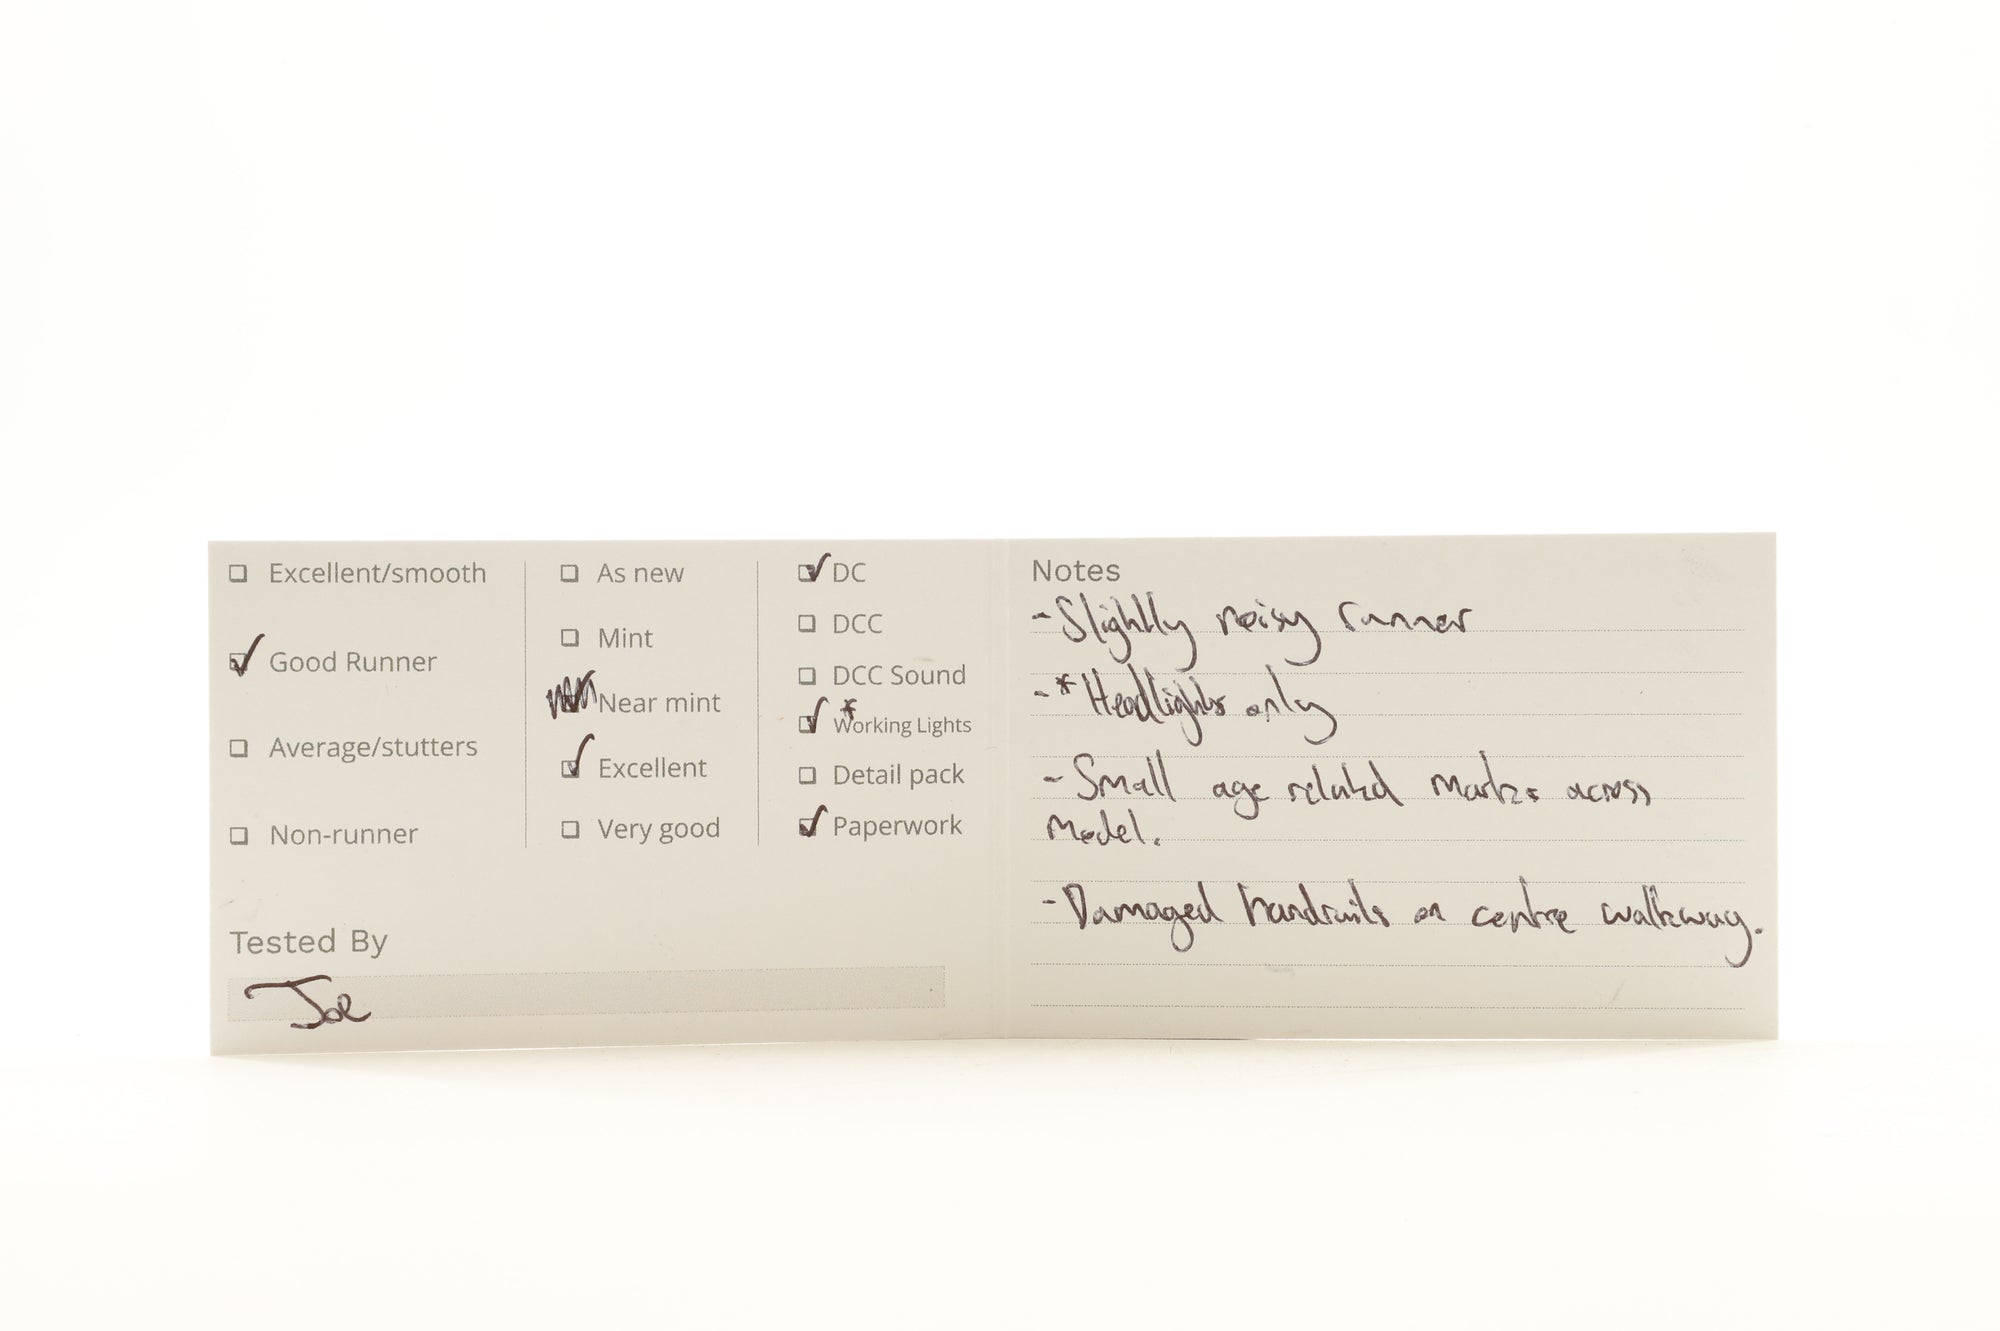 Excellent/smooth
Good Runner
Average/stutters
Non-runner
As new
Mint
Near mint
Excellent
Very good
DC
DCC
DCC Sound
*
Working Lights
Detail pack
Paperwork
Tested By
Joe
Notes
- Slightly noisy runner
- * Headlights only
- Small age related marks across
model.
- Damaged handrails on centre walkway.